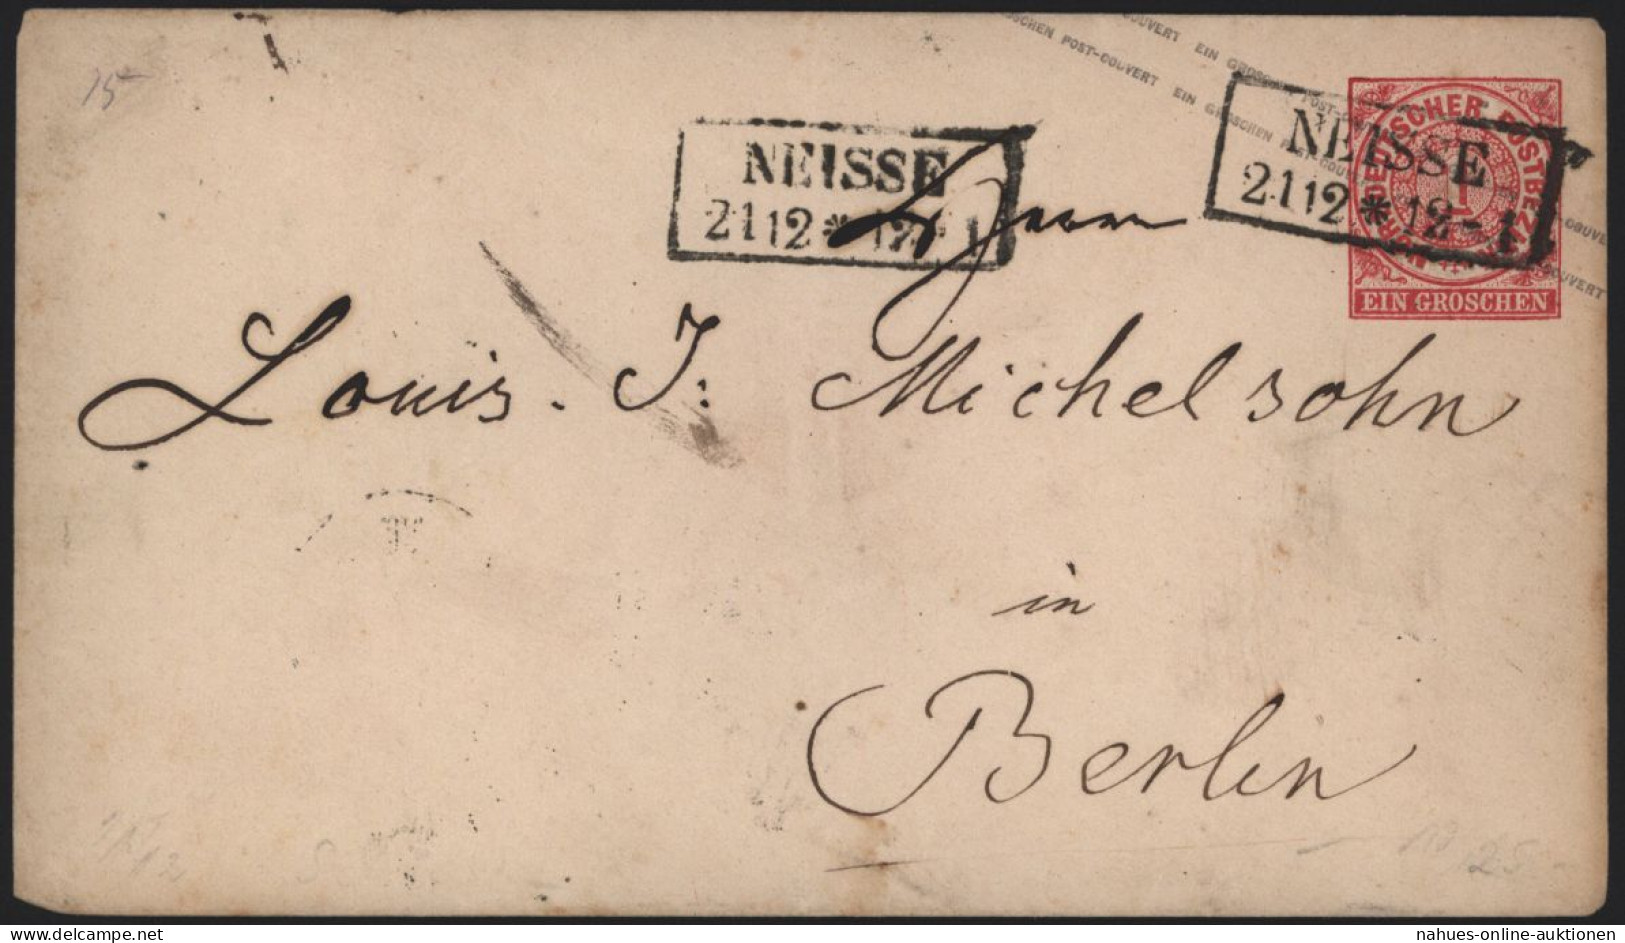 15-
SCHEN POST-COUVERT EIN GROSCHEN POST-COUVERT
COUVERT EIN GROSCHEN POST-COUVERT
NEISSE
21 12 * 12-1
NEISSE
21 12 * 12-1
NORDDEUTSCHER POSTBEZIRK
1
EIN GROSCHEN
Herrn
Louis. J. Michelsohn
in
Berlin
delcampe.net
nahues-online-auktionen